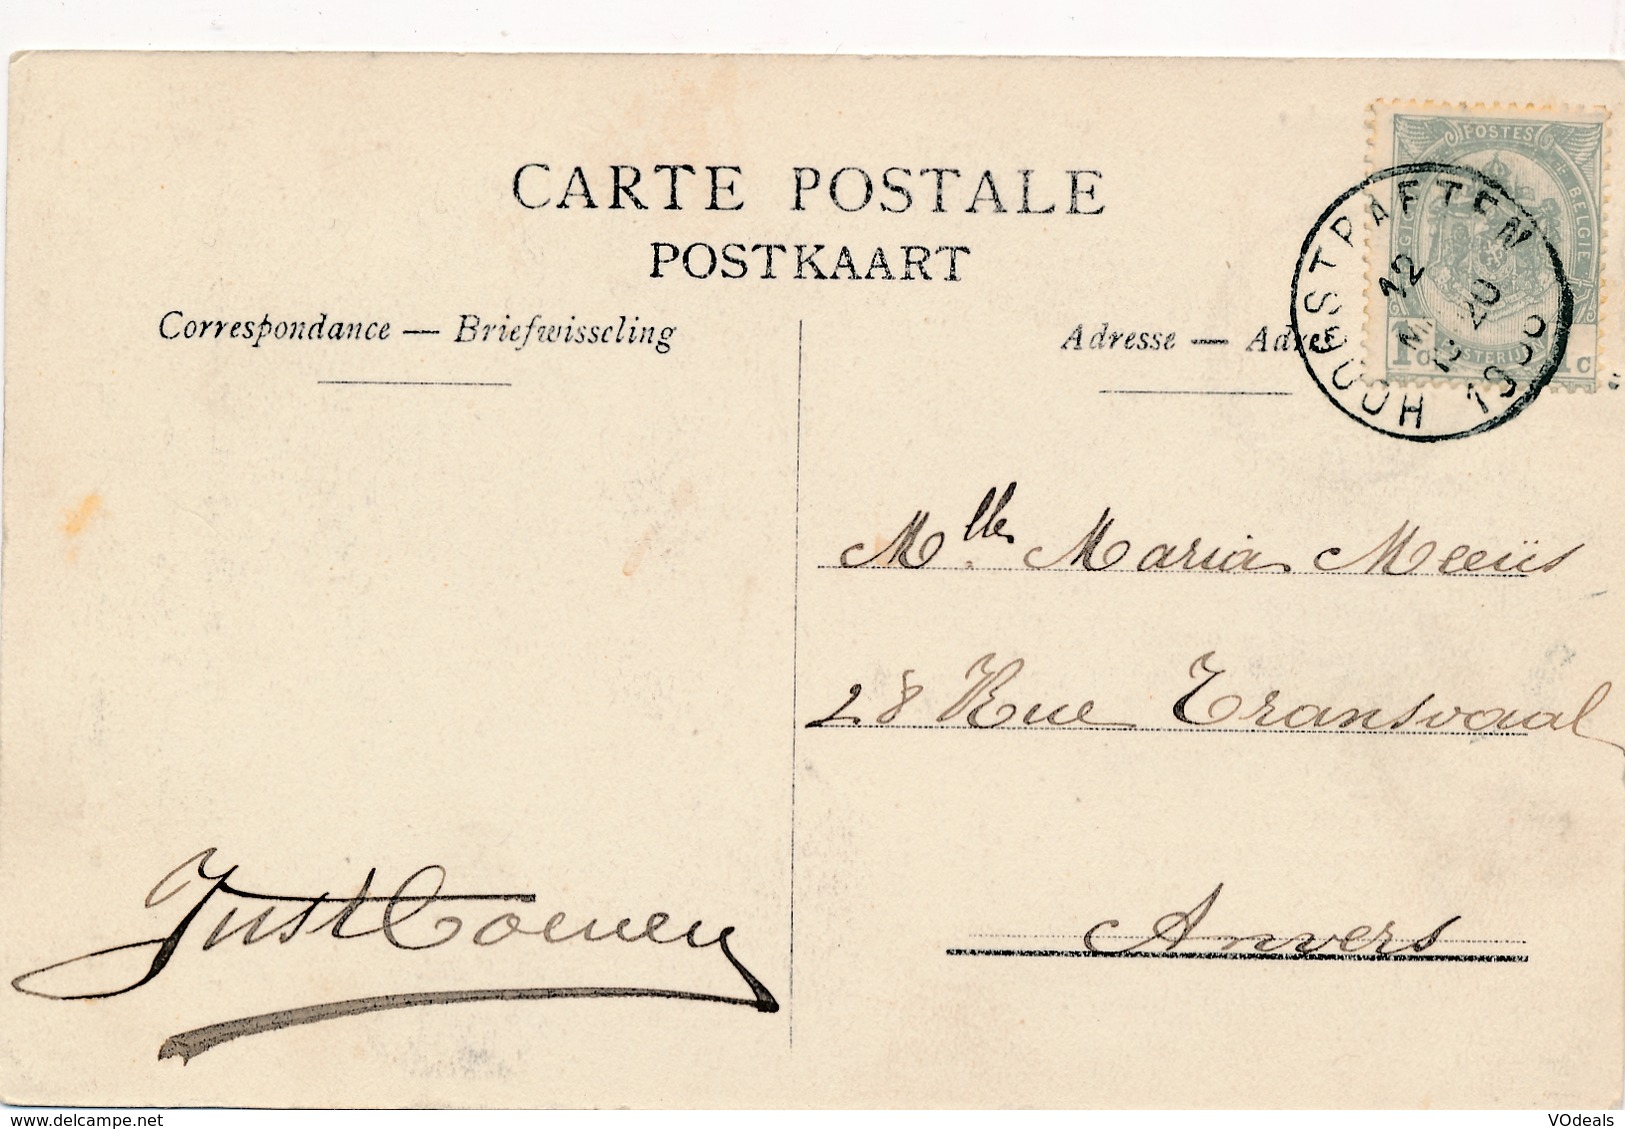 CARTE POSTALE
POSTKAART
Correspondance — Briefwisseling
Adresse — Adres
POSTES
HOOGSTRAETEN
12
20
1c
Mlle Maria Meeüs
28 Rue Transvaal
Anvers
Just Coenen
www.delcampe.net
VOdeals